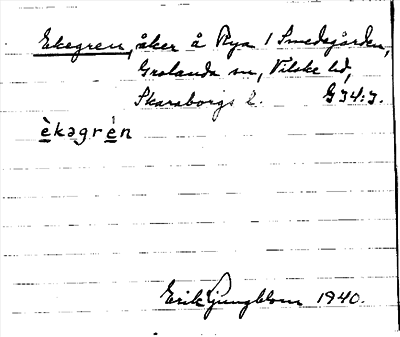 Ekegren, åker å Rya 1 Smedsgården,
Grolanda sn, Vilske hd,
Skaraborgs l. G I4:I.
èkəgrén
Erik Ljungblom 1940.